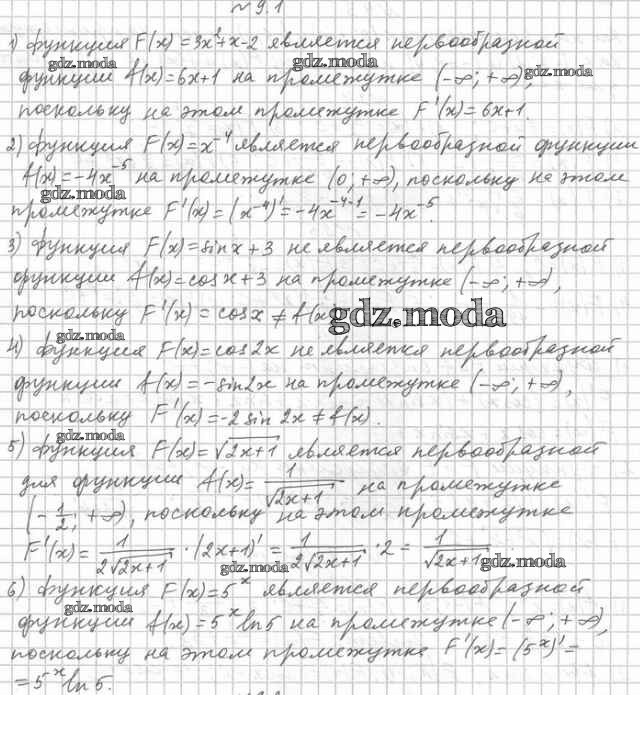 № 9.1
1) функция F(x) = 3x²+x-2 является первообразной
gdz.moda gdz.moda
функции f(x)=6x+1 на промежутке (-∞; +∞), gdz.moda
поскольку на этом промежутке F'(x)=6x+1.
2) функция F(x)=x⁻⁴ является первообразной функции
f(x)=-4x⁻⁵ на промежутке (0; +∞), поскольку на этом
gdz.moda
промежутке F'(x)=(x⁻⁴)'=-4x⁻⁴⁻¹=-4x⁻⁵.
3) функция F(x)=sinx+3 не является первообразной
функции f(x)=cosx+3 на промежутке (-∞; +∞),
поскольку F'(x)=cosx≠f(x)
gdz.moda
gdz.moda
4) функция F(x)=cos2x не является первообразной
функции f(x)=-sin2x на промежутке (-∞; +∞),
поскольку F'(x)=-2sin2x≠f(x).
gdz.moda
5) функция F(x)=√(2x+1) является первообразной
для функции f(x)=1/√(2x+1) на промежутке
(-1/2; +∞), поскольку на этом промежутке
F'(x)=1/(2√(2x+1))·(2x+1)'=1/(2√(2x+1))·2=1/√(2x+1)
gdz.moda gdz.moda
6) функция F(x)=5ˣ является первообразной
gdz.moda
функции f(x)=5ˣln5 на промежутке (-∞; +∞),
поскольку на этом промежутке F'(x)=(5ˣ)'=
=5ˣln5.